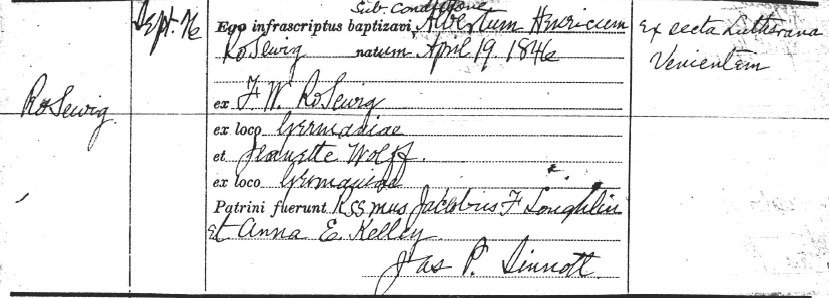 RoSewig
Sept. 16
Sub. Conditione
Ego infrascriptus baptizavi Albertum Henricum
RoSewig natum April 19. 1846
ex F. W. RoSewig
ex loco Germaniae
et Jeanette Wolff.
ex loco Germaniae
Patrini fuerunt Rssmus Jacobus F Loughlin
Et Anna E. Kelley
Jas P. Sinnott.
Ex secta Lutherana
Venientem